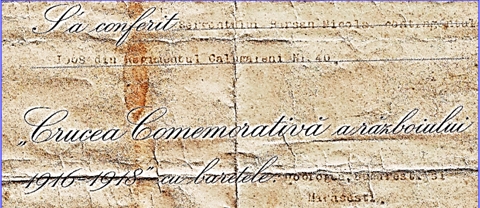 S'a conferit sergentului Burcan Nicolae contingentul
1908 din Regimentul Calugareni Nr.40,
„Crucea Comemorativă a războiului
1916-1918" cu baretele: Bucuresti, si
Marasesti.